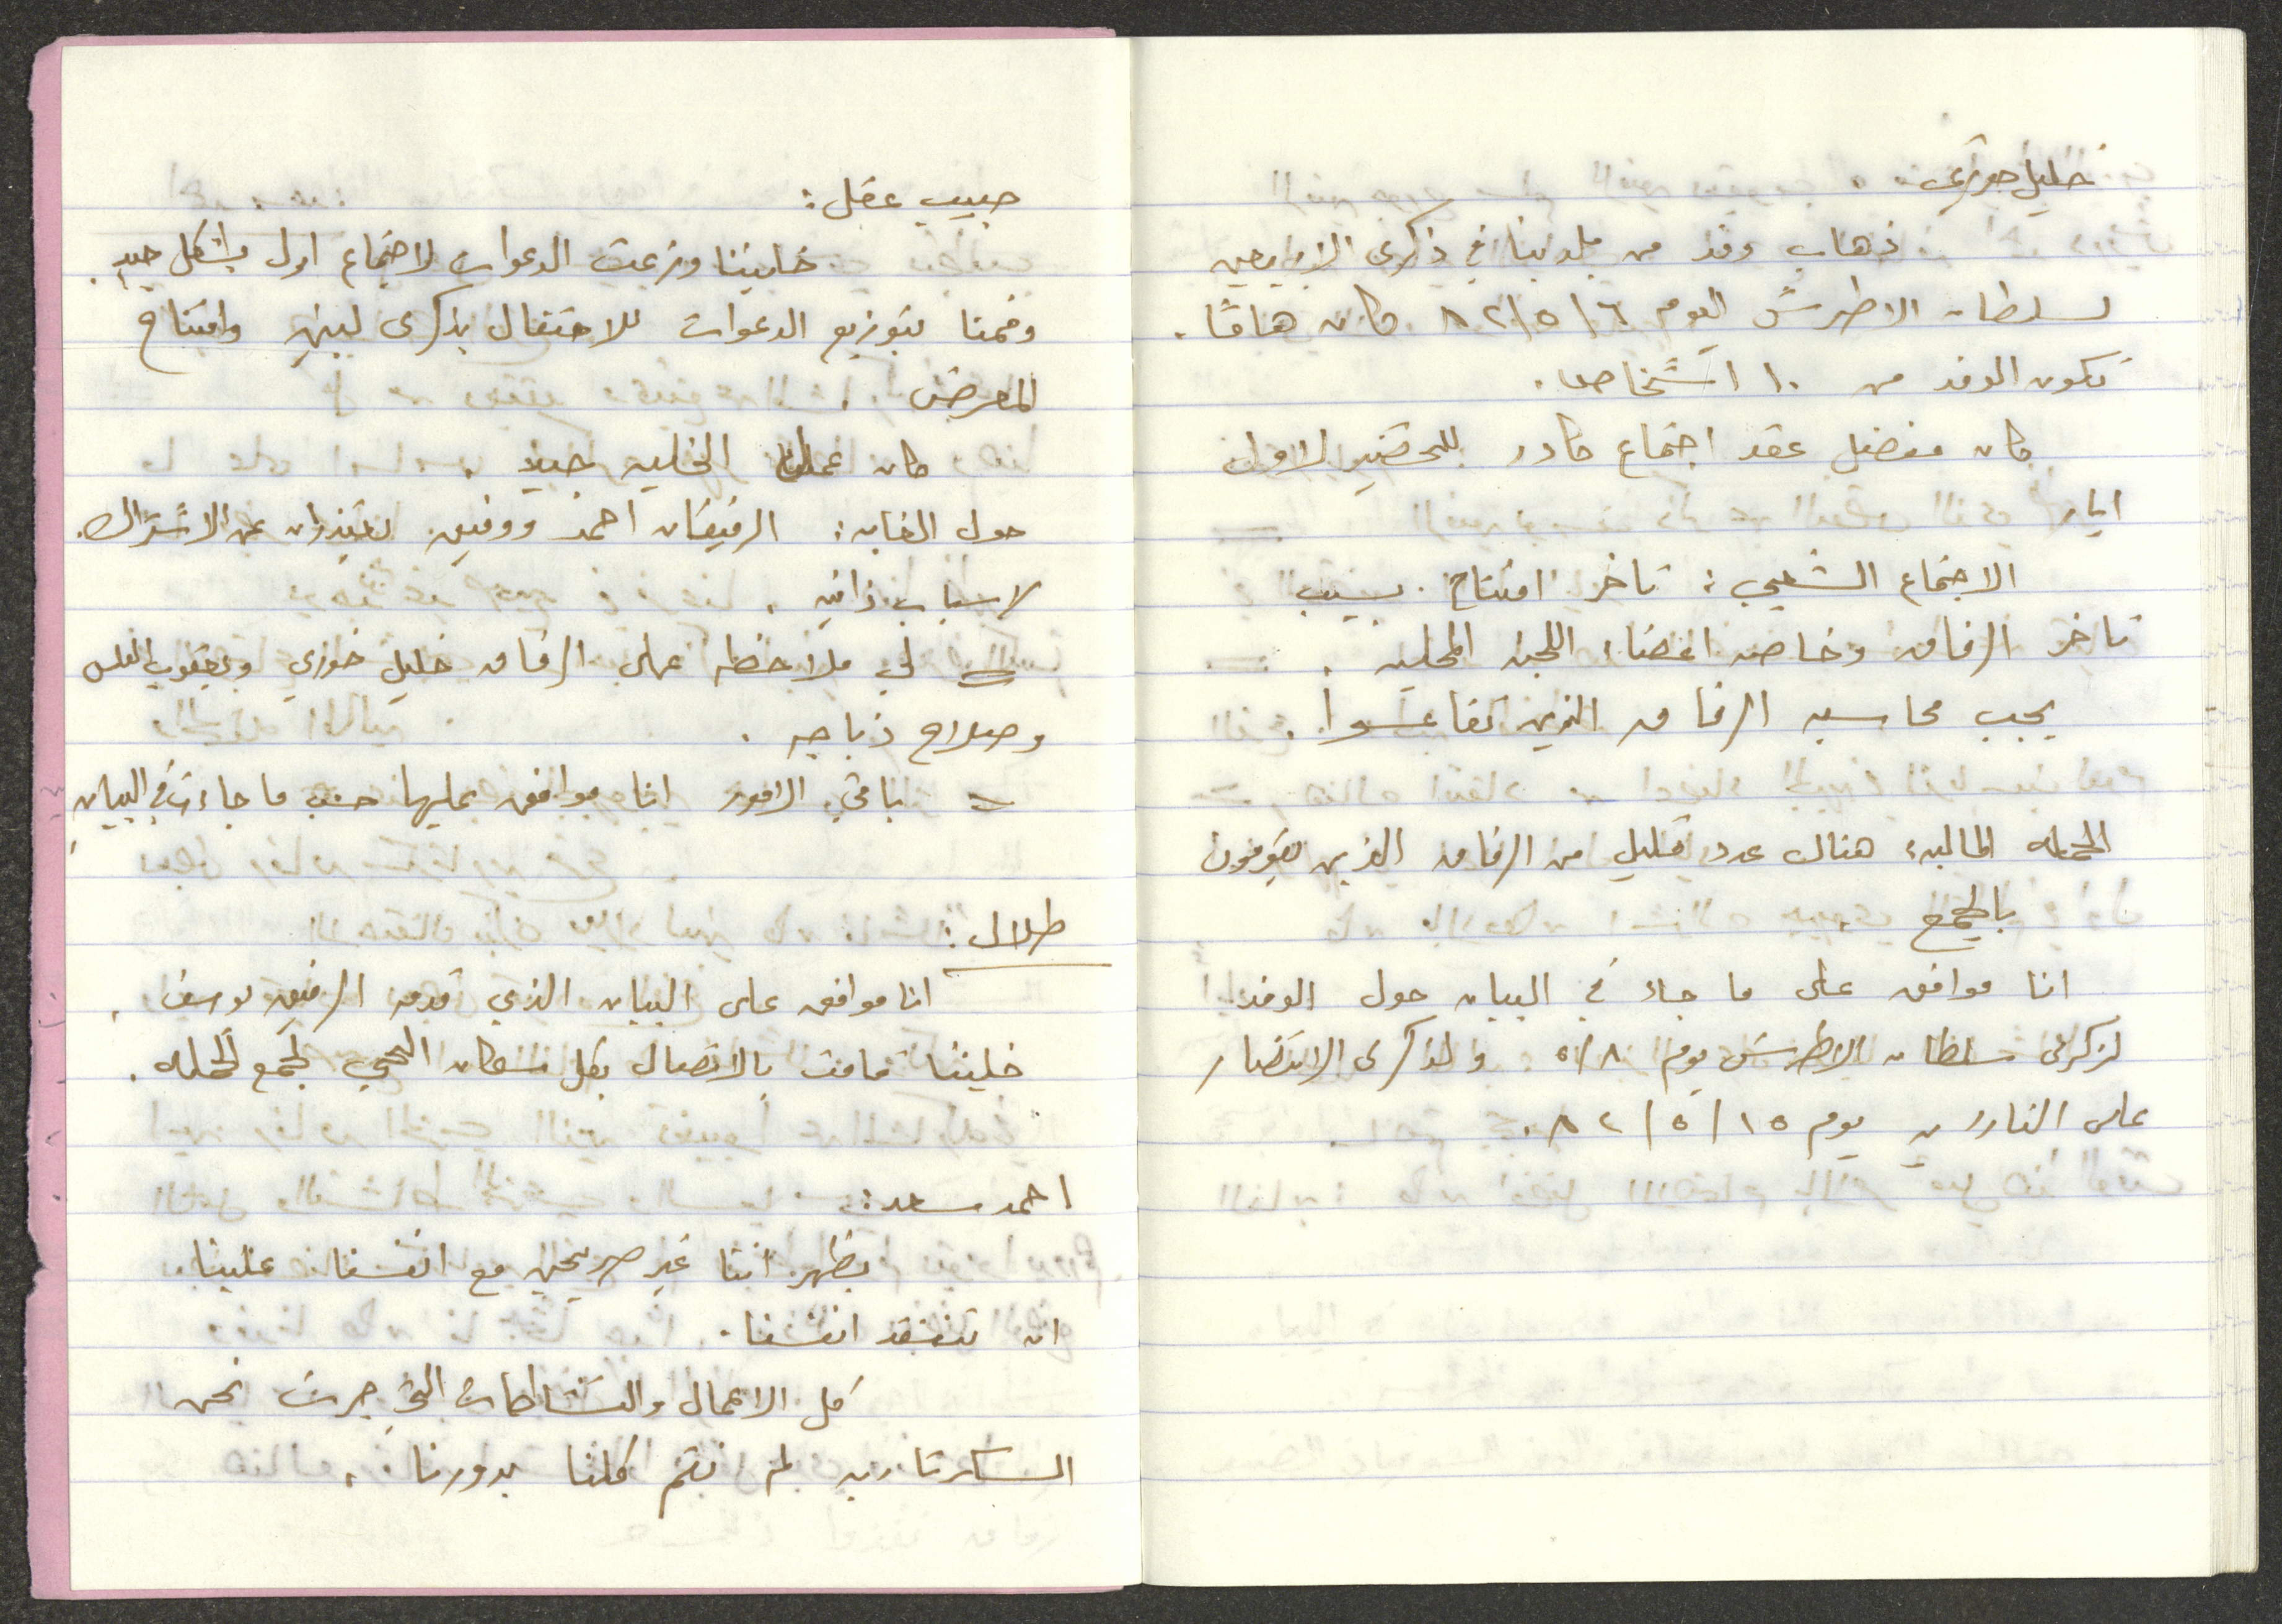 خليل حوري
ذهاب وفد من بلدتنا في ذكرى الاربعين
لسلطان الاطرش اليوم ٨٢/٥/٦ كان هامًا.
تكون الوفد من ١٠ اشخاص.
كان مفضل عقد اجتماع كادر للتحضير لاول
ايار
الاجتماع الشعبي: تاخر افتتاح بسبب
تاخر الرفاق وخاصه اعضاء اللجنه المحليه.
يجب محاسبه الرفاق الذين تقاعسوا.
الحمله الماليه: هناك عدد قليل من الرفاق الذين يقومون
بالجمع
انا موافق على ما جاء في البيان حول الوفد
لذكرى سلطان الاطرش يوم ٥/٨ ولذكرى الانتصار
على النازيه يوم ٨٢/٥/١٥.
حبيب عقل:
خليتنا وزعت الدعوات لاجتماع اول بشكل جيد.
وقمنا بتوزيع الدعوات للاحتفال بذكرى لينين وافتتاح
المعرض
كان عمل الخليه جيد.
حول الغابه: الرفيقان احمد ووفيق يعتذران عن الاشتراك.
لاسباب ذاتيه.
= لي ملاحظه على الرفاق خليل خوري ويعقوب
وصلاح دباجه.
= باقي الامور انا موافق عليها حسب ما جاءت في البيان
طلال:
انا موافق على البيان الذي قدمه الرفيق يوسف.
خليتنا قامت بالاتصال بكل سكان الحي لجمع الحمله.
احمد سعد:
يظهر اننا غير صريحين مع انفسنا علينا
ان ننتقد انفسنا.
كل الاعمال والنشاطات التي جرت نحن
السكرتاريه لم نقم كلنا بدورنا.